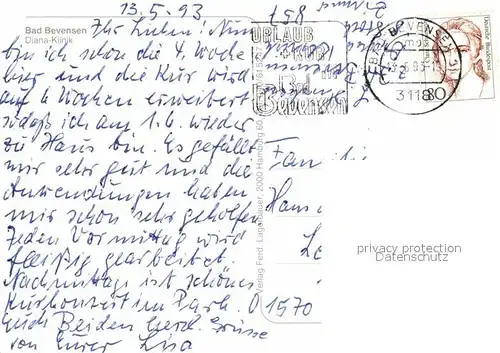 13.5.93
Bad Bevensen
Diana-Klinik
Ihr Lieben! Nun
bin ich schon die 4. Woche
hier und die Kur wird
auf 6 Wochen erweitert
sodaß ich am 1.6. wieder
zu Haus bin. Es gefällt
mir sehr gut und die
Anwendungen haben
mir schon sehr geholfen
Jeden Vormittag wird
fleißig gearbeitet.
Nachmittags ist schönes
Kurkonzert im Park.
Euch Beiden herzl. Grüsse
von Eurer Lisa
Zimmer
158
URLAUB
+ KUR
in
Bad
Bevensen
BEVENSEN
3118
80
Deutsche Bundespost
Verlag Ferd. Lagerbauer, 2000 Hamburg 60,
Fam
Hans
1570
privacy protection
Datenschutz